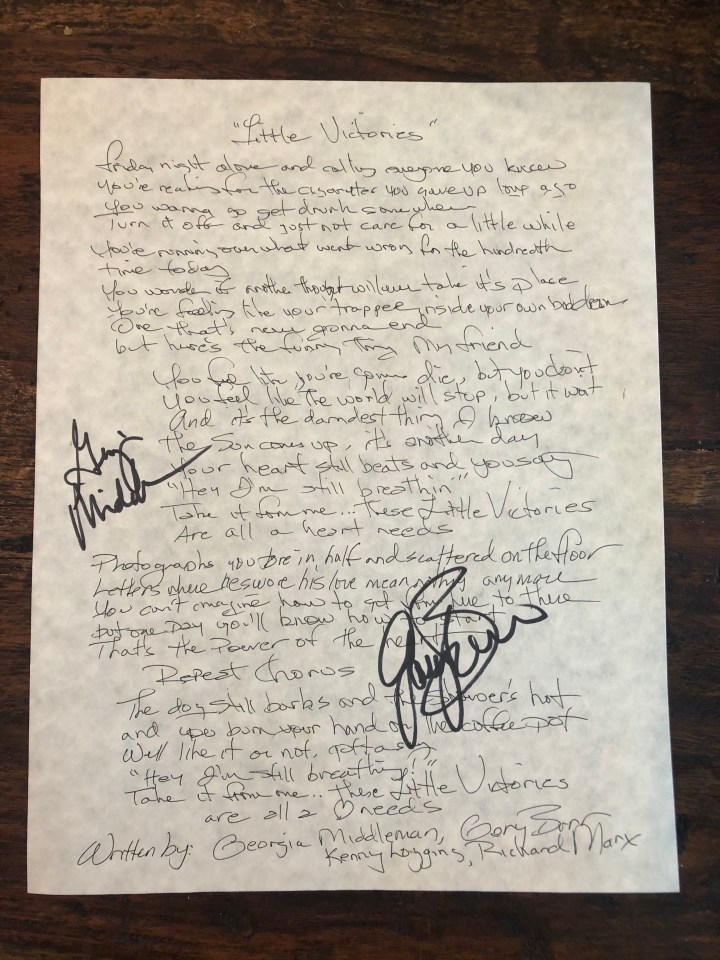 "Little Victories"
Friday night alone and calling everyone you knew
You're reaching for the cigarettes you gave up long ago
You wanna go get drunk somewhere
Turn it off and just not care for a little while
You're running over what went wrong for the hundredth
time today
You wonder if another thought will ever take it's place
You're feeling like your trapped inside your own bad dream
One that's never gonna end
but here's the funny thing My friend
You feel like you're gonna die, but you don't
You feel like the world will stop, but it won't
And it's the darndest thing I know
the Sun comes up, it's another day
Your heart still beats and you say
"Hey I'm still breathin'"
Take it from me... These Little Victories
Are all a heart needs
Georgia
Middleman
Photographs you tore in half and scattered on the floor
Letters where he swore his love mean nothing anymore
You can't imagine how to get from here to there
but one Day you'll know how to start
That's the Power of the heart
Repeat Chorus
The dog still barks and the shower's hot
and you burn your hand on the coffee pot
Well like it or not, gotta say
"Hey I'm still breathing!"
Take it from me.. These Little Victories
are all a ♡ needs
Gary Burr
Written by: Georgia Middleman, Gary Burr
Kenny Loggins, Richard Marx